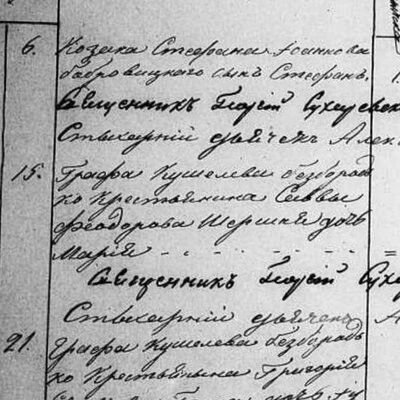 6. Козака Стефана Іоаннова
бобровицкого сынъ Стефанъ.
Священникъ Георгій Сухаревск
Стихарный дьячекъ Алек
15. Графа Кушелева безбород
ко Крестьянина Саввы
Феодорова Шершня дочь
Марія
Священникъ Георгій Сух
Стихарній дьячекъ А
21. Графа Кушелева Безбород
ко Крестьянина Григорія
дочь